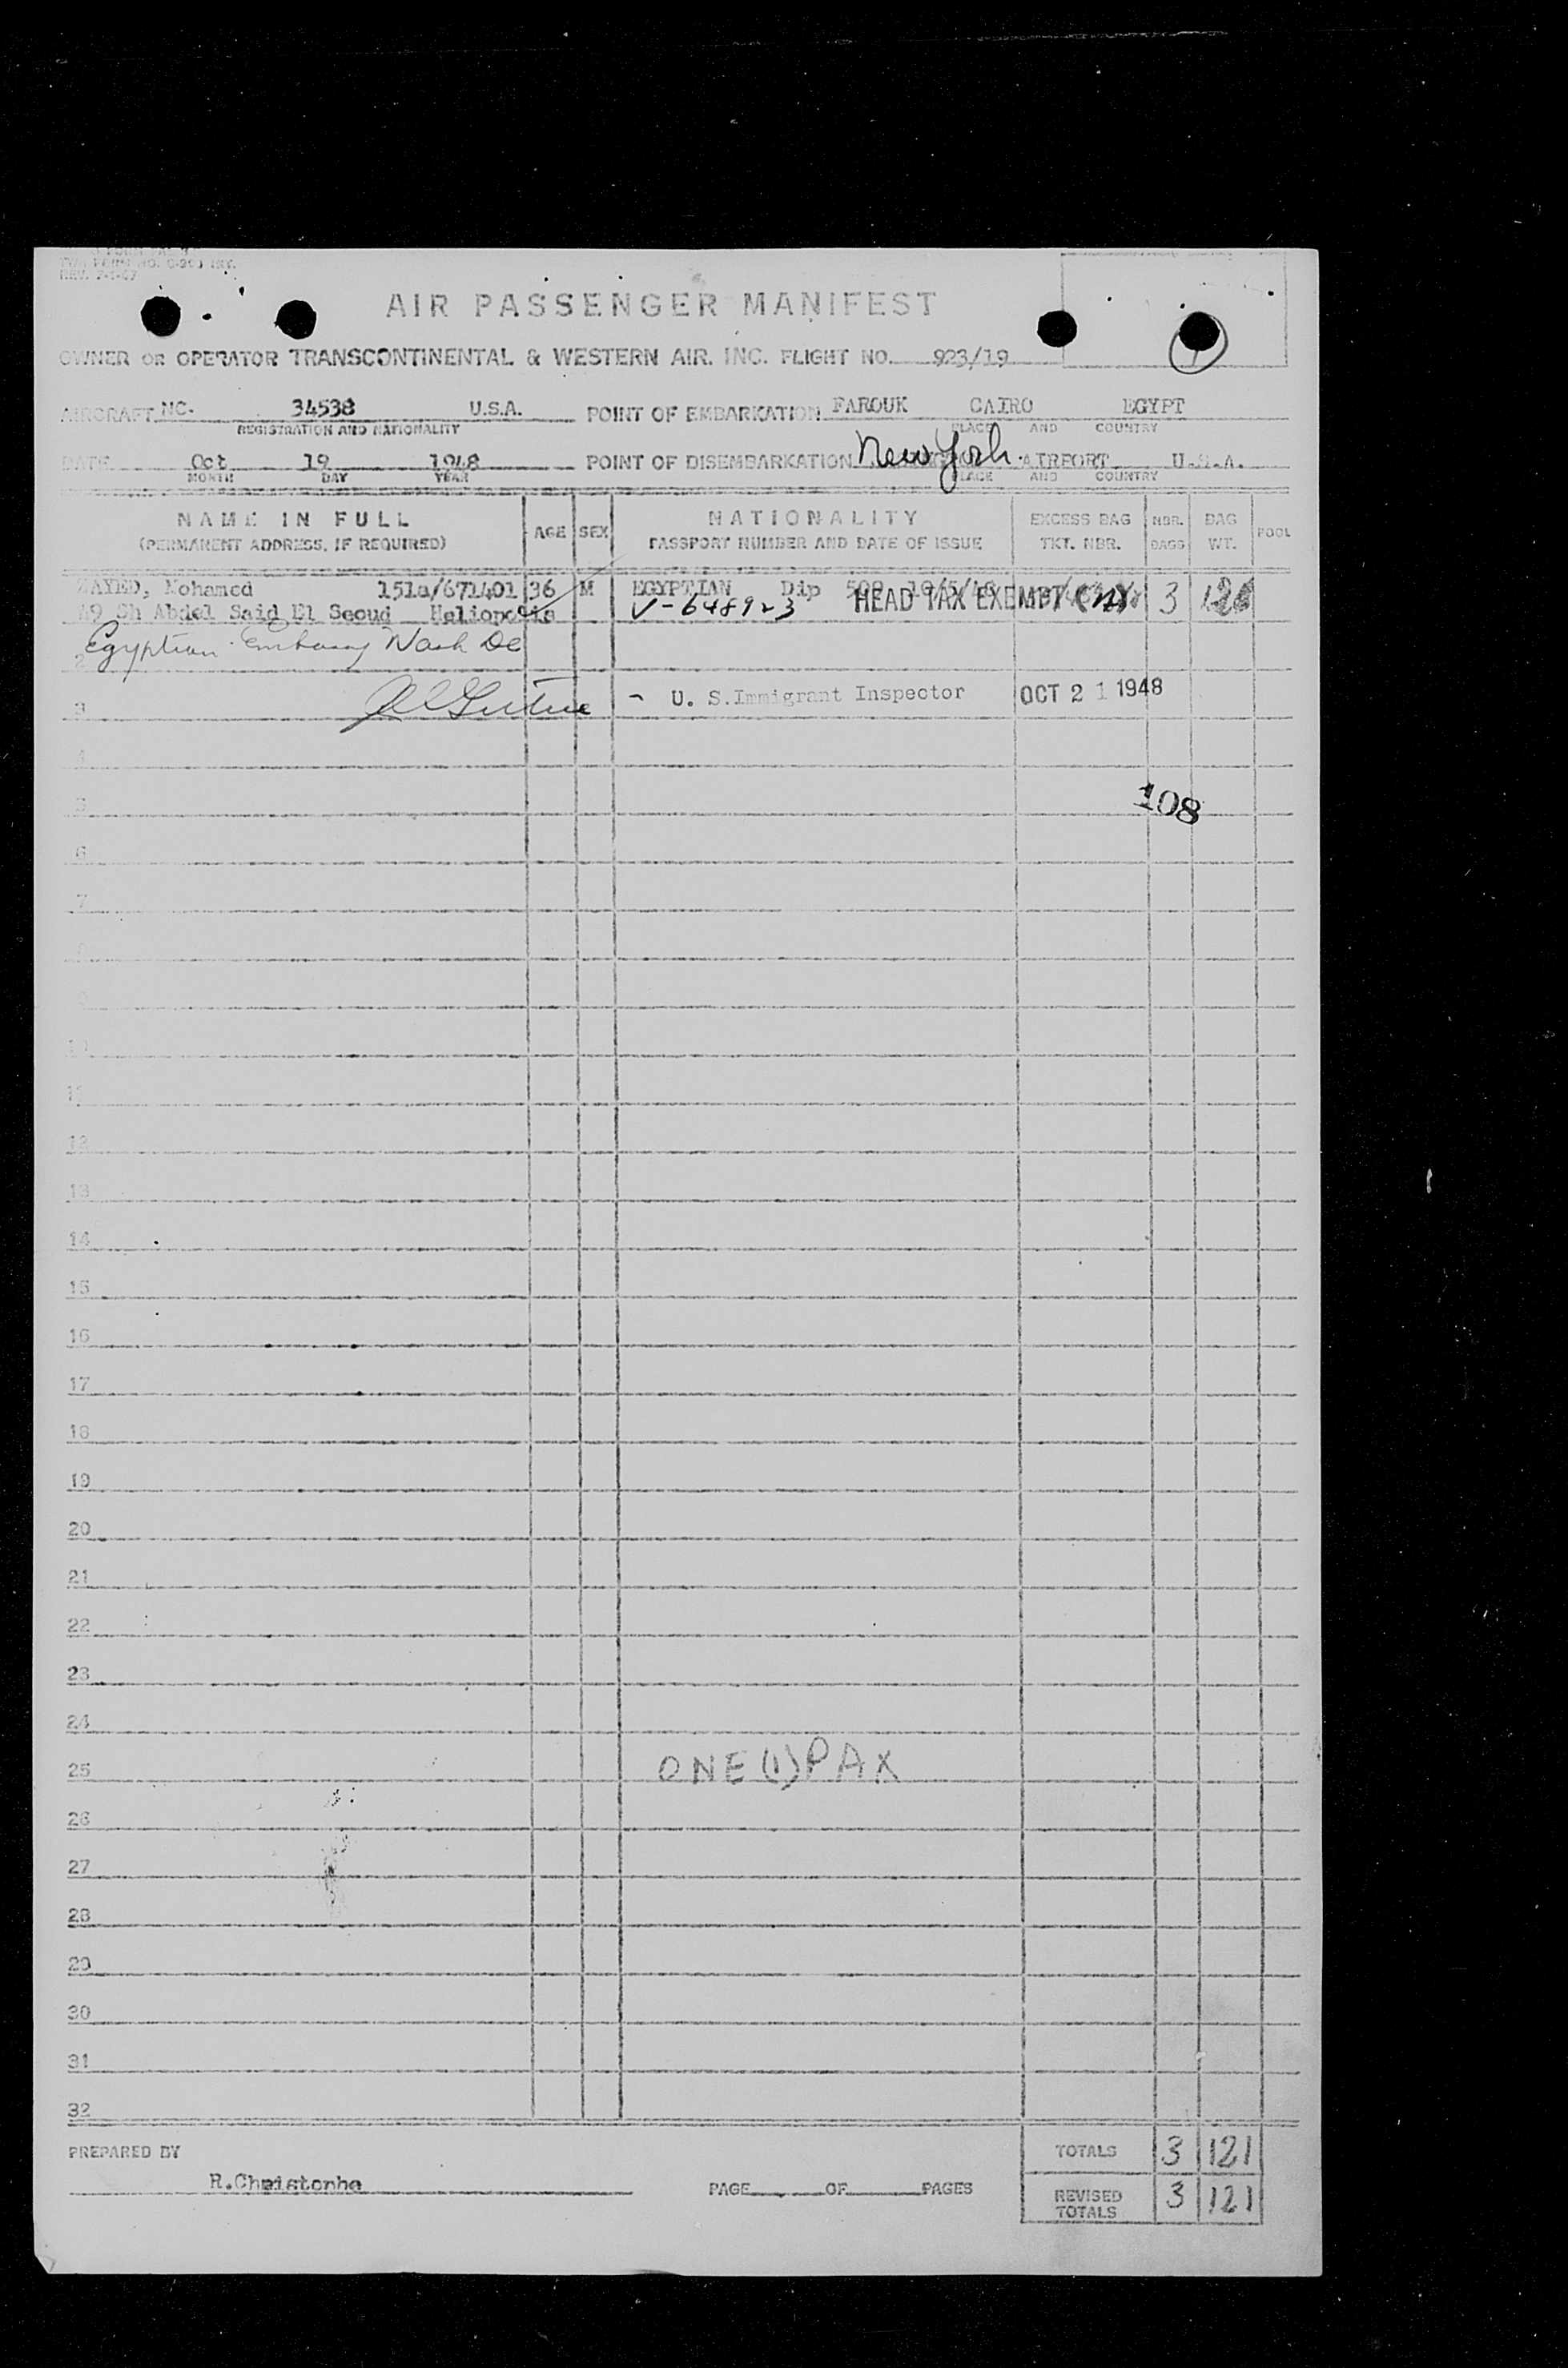 TWA FORM NO. C-203 INT.
REV. 7-1-47
AIR PASSENGER MANIFEST
OWNER OR OPERATOR TRANSCONTINENTAL & WESTERN AIR. INC. FLIGHT NO. 923/19
AIRCRAFT NC. 34538 U.S.A. POINT OF EMBARKATION FAROUK CAIRO EGYPT
REGISTRATION AND NATIONALITY PLACE AND COUNTRY
DATE Oct 19 1948 POINT OF DISEMBARKATION New York AIRPORT U.S.A.
MONTH DAY YEAR PLACE AND COUNTRY
NAME IN FULL AGE SEX NATIONALITY EXCESS BAG NBR. BAG POOL
(PERMANENT ADDRESS, IF REQUIRED) PASSPORT NUMBER AND DATE OF ISSUE TKT. NBR. BAGS WT.
ZAYED, Mohamed 151a/671401 36 M EGYPTIAN Dip HEAD TAX EXEMPT 3 121
49 Sh Abdel Said El Seoud Heliopolis V-648923
Egyptian Embassy Wash DC
2
3 - U. S. Immigrant Inspector OCT 21 1948
4
5 108
6
7
8
9
10
11
12
13
14
15
16
17
18
19
20
21
22
23
24
25 ONE (1) PAX
26
27
28
29
30
31
32
PREPARED BY TOTALS 3 121
R.Christophe PAGE OF PAGES REVISED TOTALS 3 121